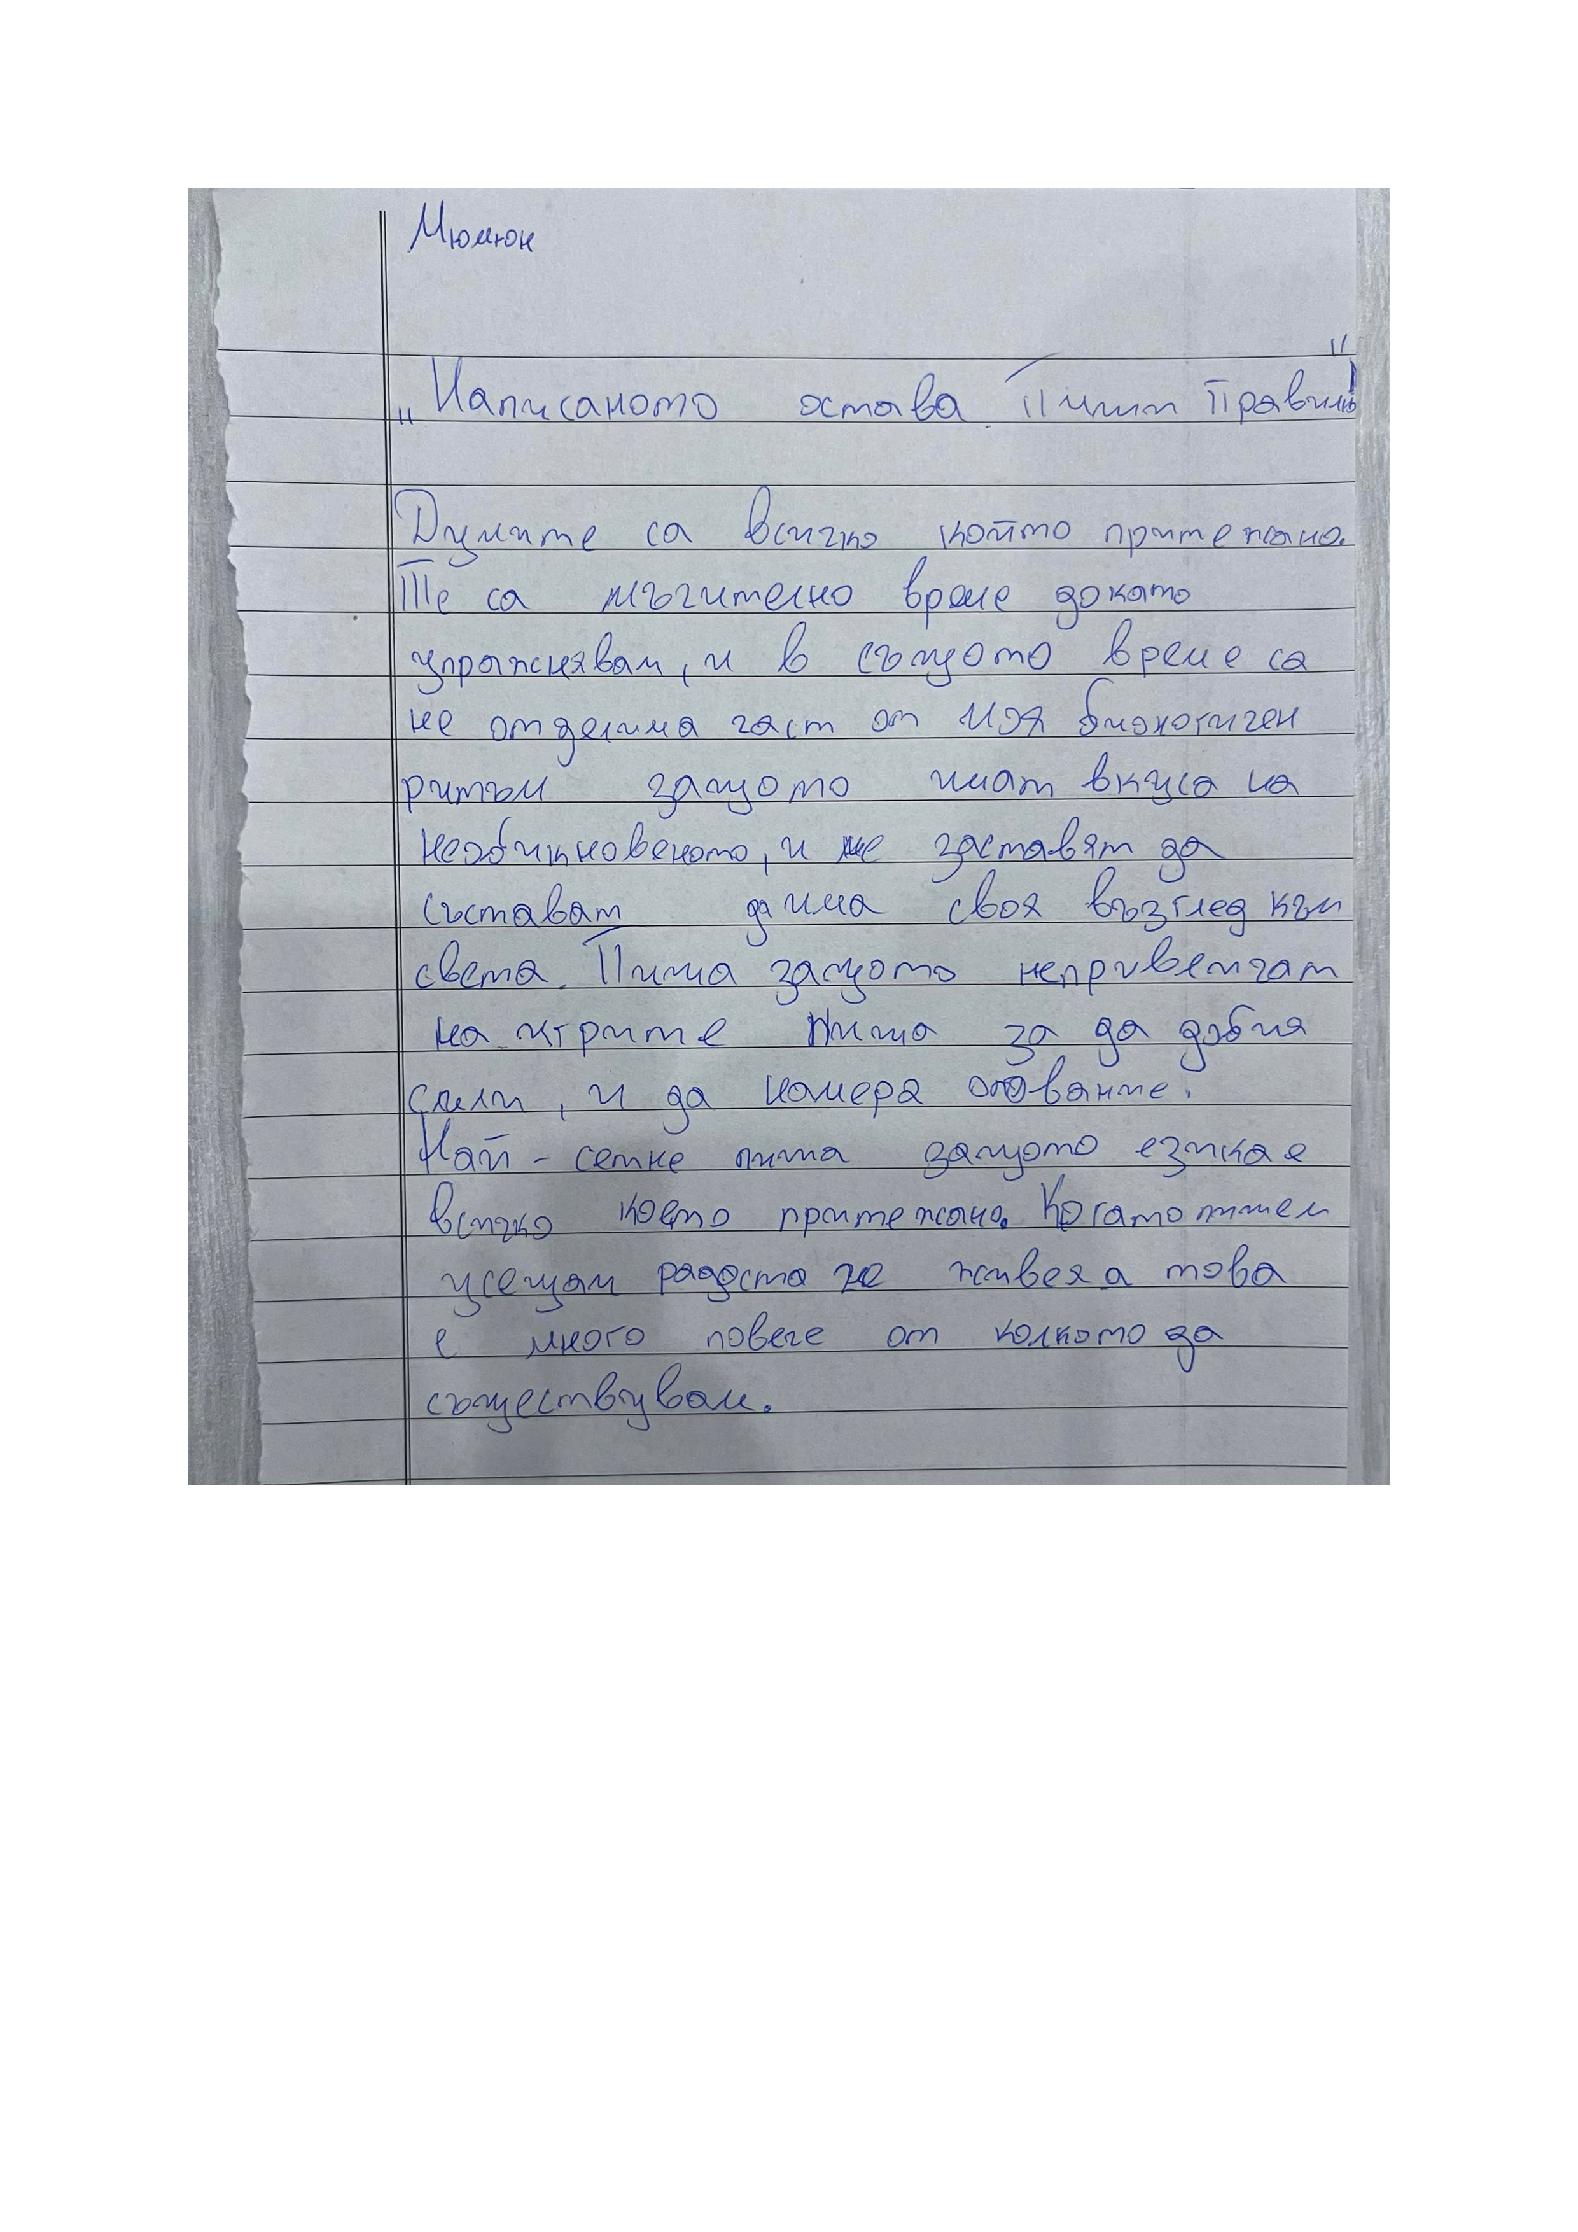 Мюмюн
„Написаното остава Пиши Правилно"
Думите са всичко който притежано.
Те са мъчително време докато
упражнявам, и в същото време са
не отделима част от моя биологичен
ритъм защото имат вкуса на
необикновеното, и ме заставят да
съставят да има своя възглед към
света. Пиша защото непривеичат
на игрите Пиша за да добия
сили, и да намеря
Най - сетне пиша защото езика е
всичко което притежано. Когато пишем
усещам радоста че живея а това
е много повече от колкото да
съществувам.